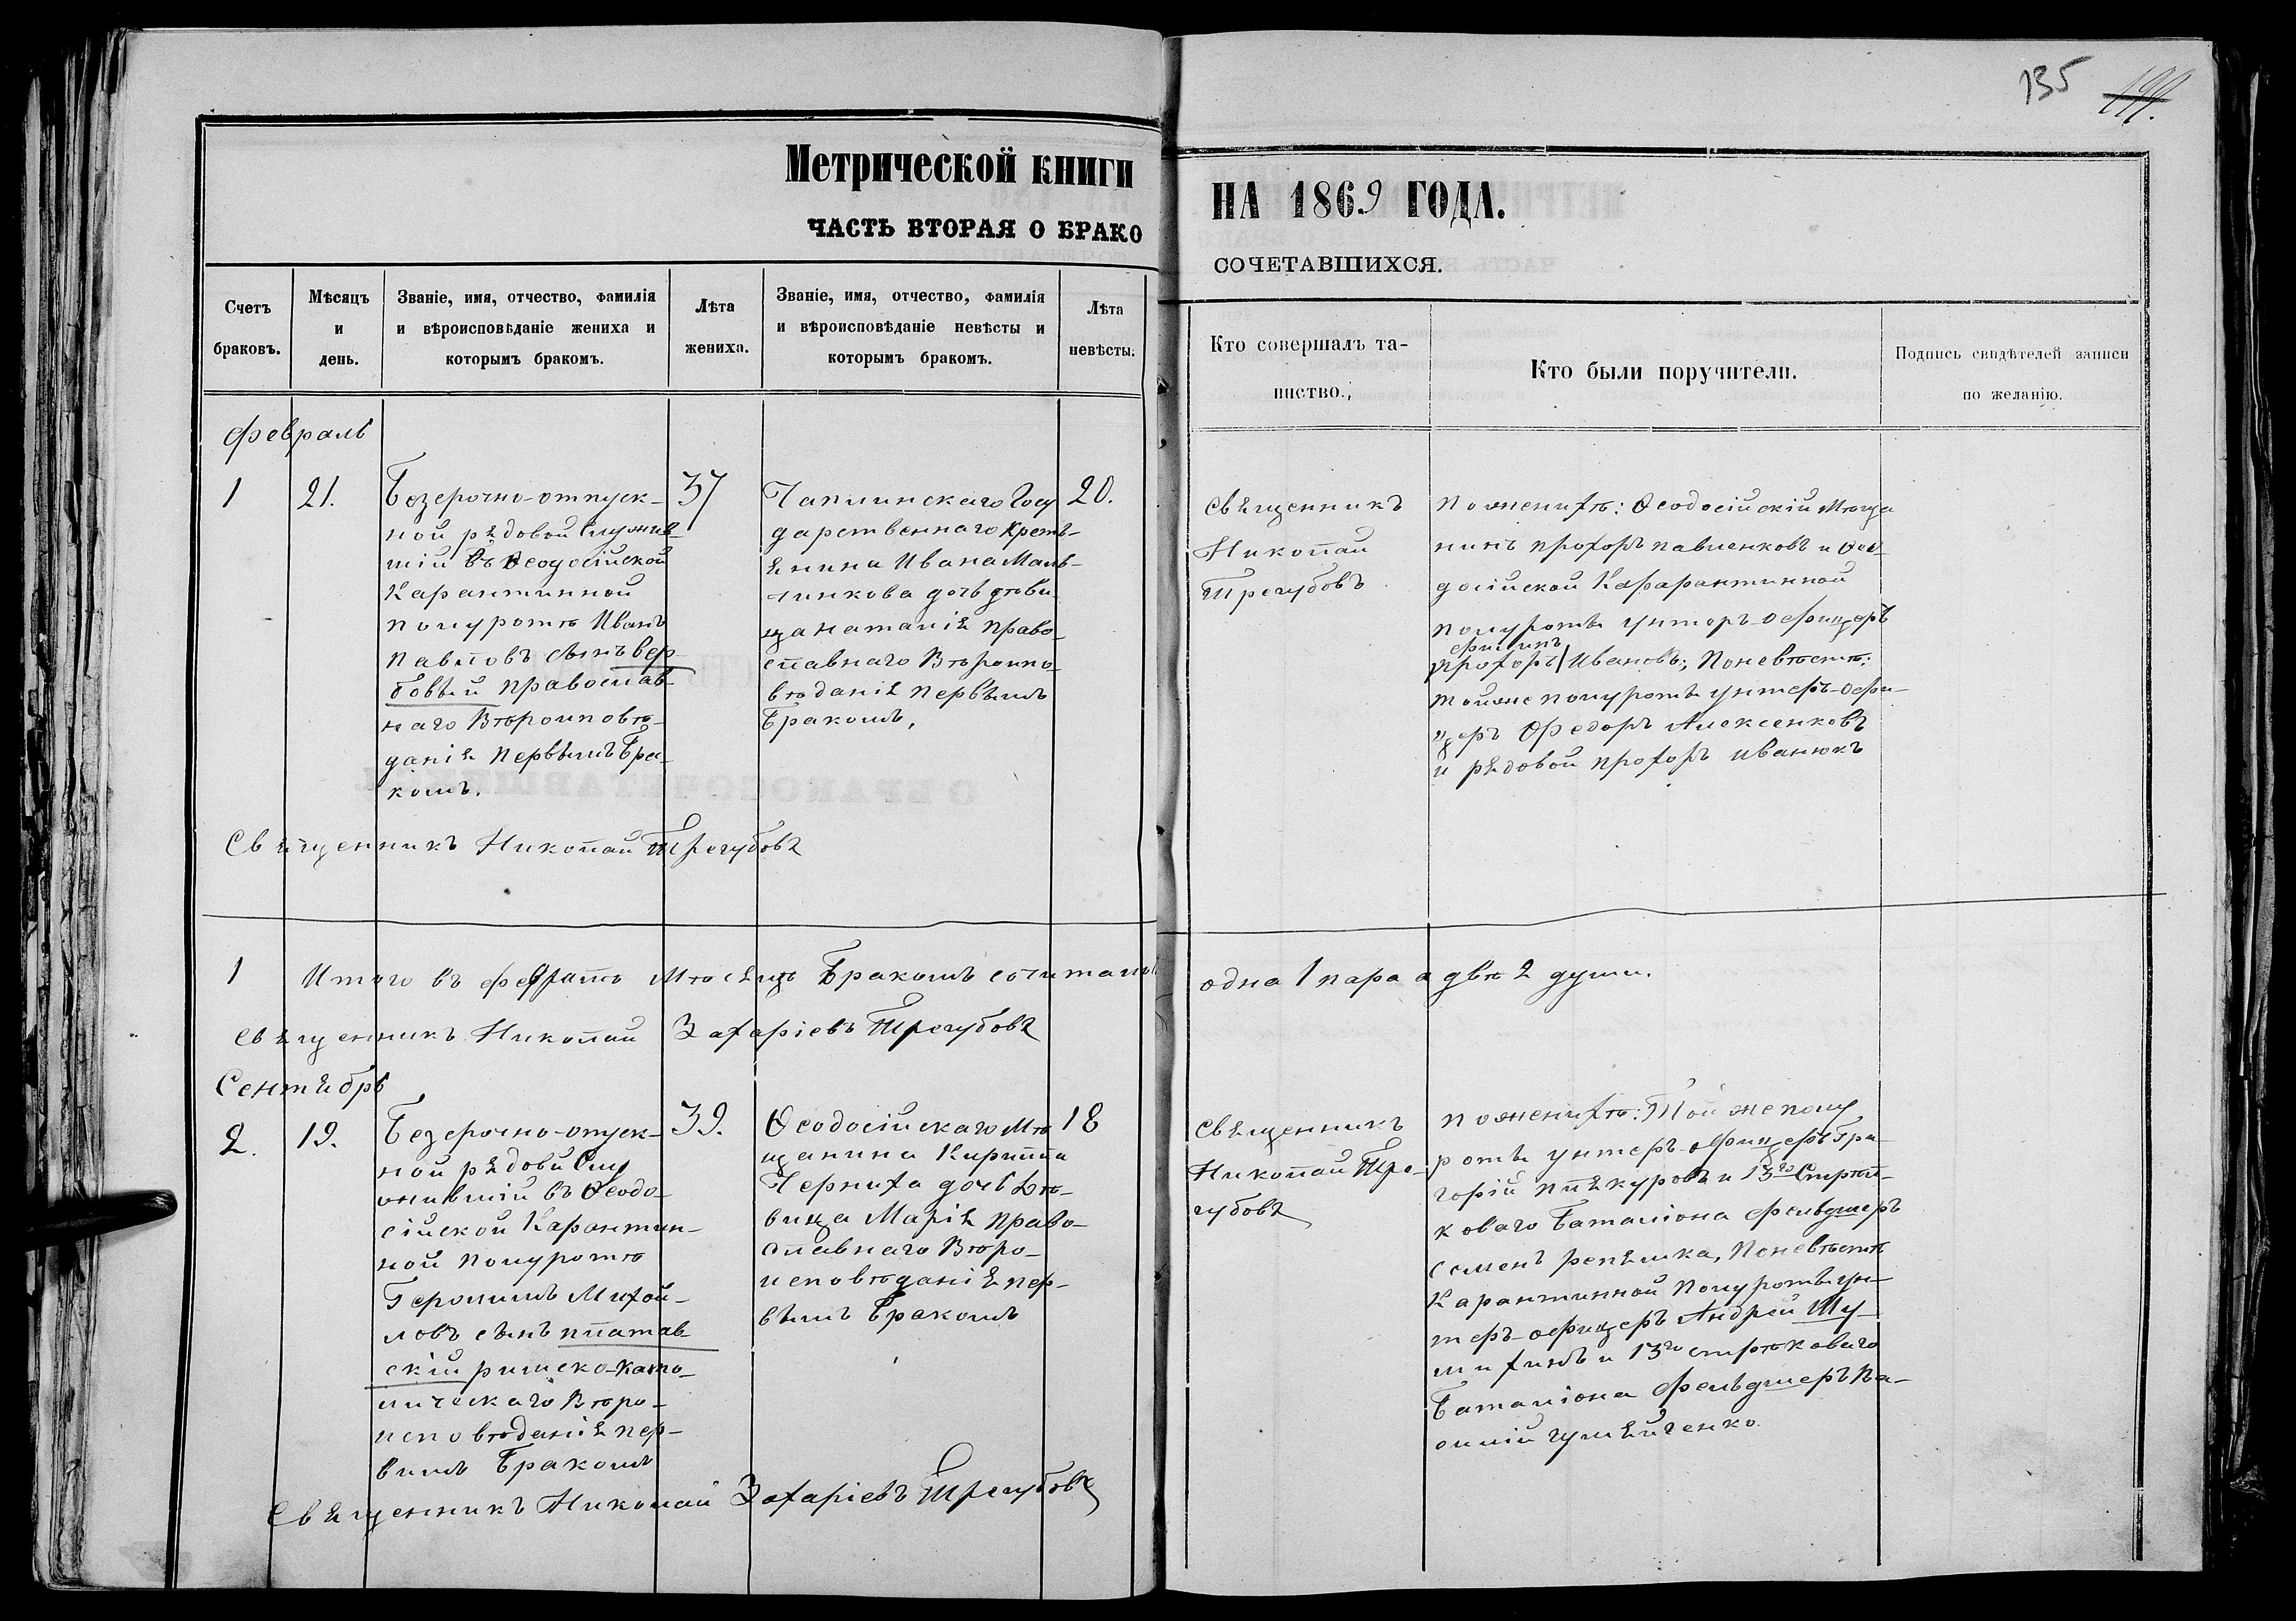 135
199.
Метрической книги
НА 1869 ГОДА.
ЧАСТЬ ВТОРАЯ О БРАКО
СОЧЕТАВШИХСЯ.
Счетъ
браковъ.
Мѣсяцъ
и
день.
Званіе, имя, отчество, фамилія
и вѣроисповѣданіе жениха и
которымъ бракомъ.
Лѣта
жениха.
Званіе, имя, отчество, фамилія
и вѣроисповѣданіе невѣсты и
которымъ бракомъ.
Лѣта
невѣсты.
Кто совершалъ та-
инство.
Кто были поручители.
Подпись свидѣтелей записи
по желанію.
Февраль
1
21.
Безсрочно-отпуск-
ной рядовой Служив-
шій въ Ѳеодосійской
Карантинной
полуротѣ Иванъ
Павловъ сынъ Вер-
бовый православ-
наго Вѣроиповѣ-
данія первымъ Бра-
комъ.
37
Чаплинскаго Госу
дарственнаго Крестъ-
янина Ивана Маль-
чинкова дочь дѣви
ца Наталія право-
славнаго Вѣроипо-
вѣданія первымъ
Бракомъ.
20.
Священникъ
Николай
Трегубовъ
По женихѣ: Ѳеодосійскій Мѣща
нинъ Прохоръ Павленковъ и Ѳео
досійской Карарантинной
полуроты унторъ-офицеръ
Филипъ
Прохоръ/Ивановъ; По невѣстѣ:
той же полуроты унтеръ-офи-
церъ Ѳедоръ Алексенковъ
и рядовой Прохоръ Иванюкъ
Священникъ Николай Трегубовъ
1 Итого въ февралѣ Мѣсяцѣ Бракомъ сочитаны
одна 1 пара а двѣ 2 души.
Священникъ Николай Захаріевъ Трегубовъ
Сентябрь
2.
19.
Безсрочно-отуск-
ной рядовй Слу
жившій въ Ѳеодо-
сійской Карантин-
ной полуротѣ
Геронимъ Михай-
ловъ сынъ Платав
скій римско-като-
лическаго Вѣро-
исповѣданія пер-
вымъ Бракомъ
39.
Ѳеодосійскаго Мѣ
щанина Кирилла
Черниха дочь Дѣ-
вица Марія право-
славнаго Вѣро-
исповѣданія пер-
вымъ Бракомъ
18
Священникъ
Николай Тре-
губовъ
По женихѣ: Той же полу
роты унтеръ-офицеръ Гри-
горій Пшкуровъ и 13го Стрѣл-
коваго Баталіона фельдшеръ
Семенъ Репяшка, По невѣстѣ
Карантинной Полуроты ун-
теръ-офицеръ Андрей Шу-
михинъ и 13го стрѣлковаго
Баталіона фельдшеръ Ва-
силій
Священникъ Николай Захаріевъ Трегубовъ